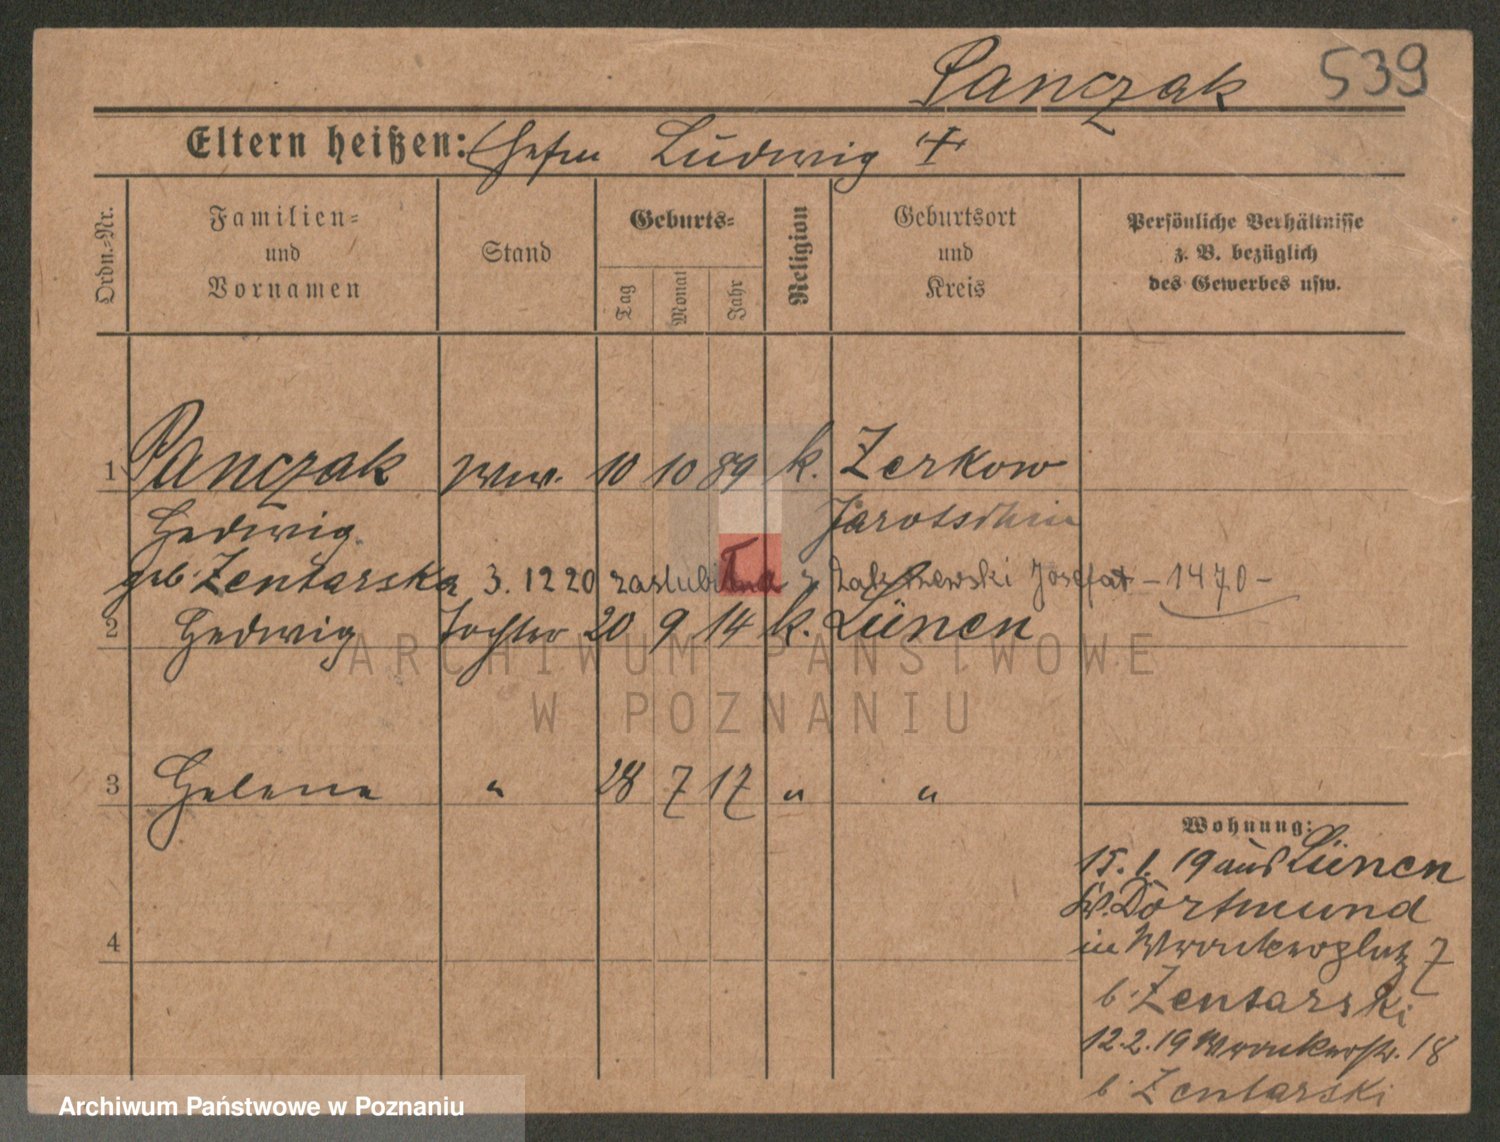 Panczak 539
Eltern heißen: Ehefrau Ludwig +
Ordn.-Nr.
Familien- und Vornamen
Stand
Geburts-
Tag Monat Jahr
Religion
Geburtsort und Kreis
Persönliche Verhältnisse z. B. bezüglich des Gewerbes usw.
1 Panczak Wwe. 10 10 89 k. Zerkow
Hedwig Jarotschin
geb. Zentarska 3.12 20 zaslubiona z Josefat -1470-
2 Hedwig Tochter 20 9 14 k. Lünen
ARCHIWUM PAŃSTWOWE
W POZNANIU
3 Helene " 28 7 17 " "
Wohnung:
15.1.19 aus Lünen
Kr. Dortmund
4
in Wronkerplatz 7
b. Zentarski
12.2.19 Wronkerstr. 18
b. Zentarski
Archiwum Państwowe w Poznaniu